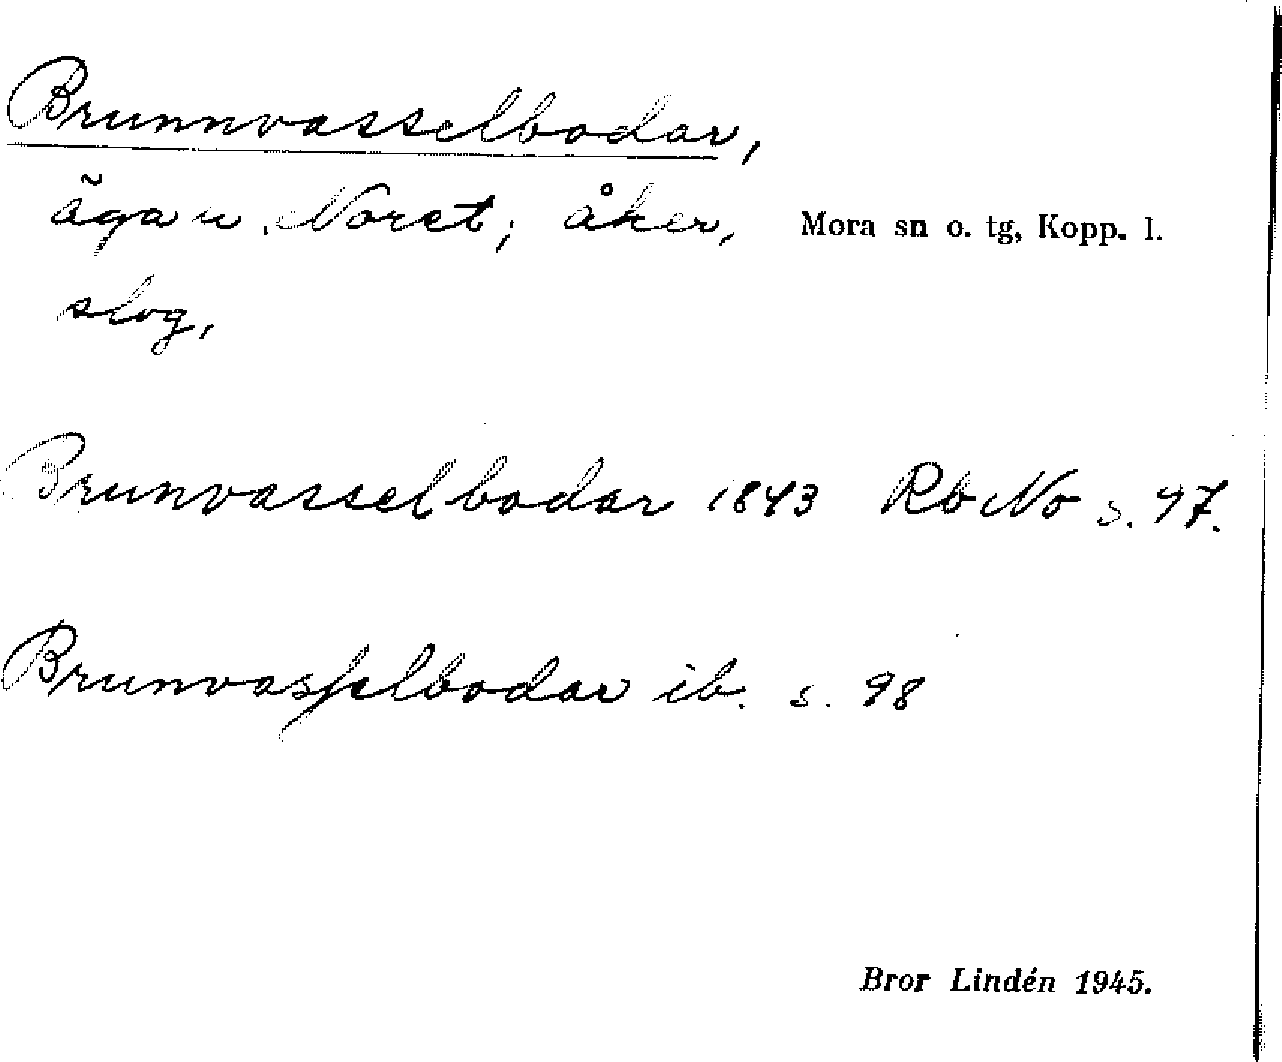 Brunnvasselbodar,
äga u. Noret; åker, Mora sn o. tg, Kopp. l.
slog,
Brunvasselbodar 1843 Rb No s. 97.
Brunvasſelbodar ib. s. 98
Bror Lindén 1945.